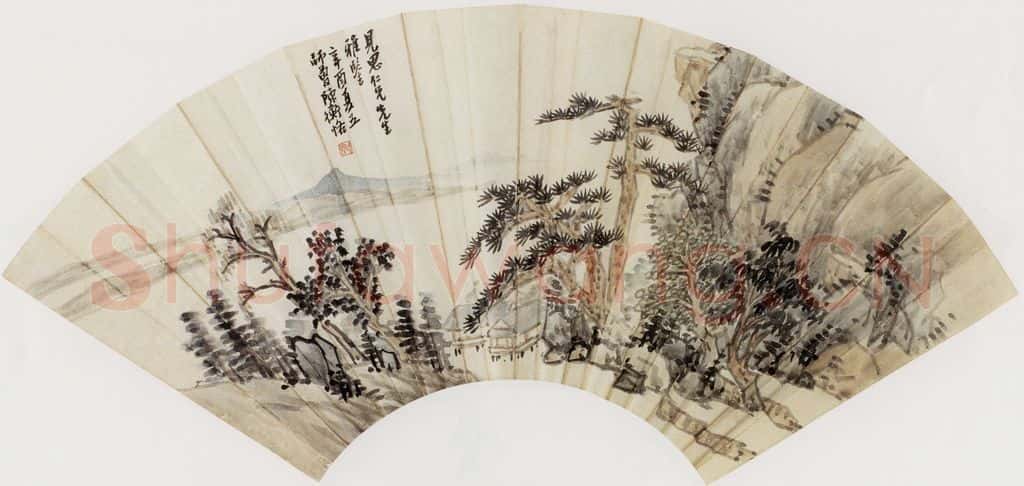 見思仁兄先生
雅
辛酉夏五
師曾陳衡恪
Shufawang.CN